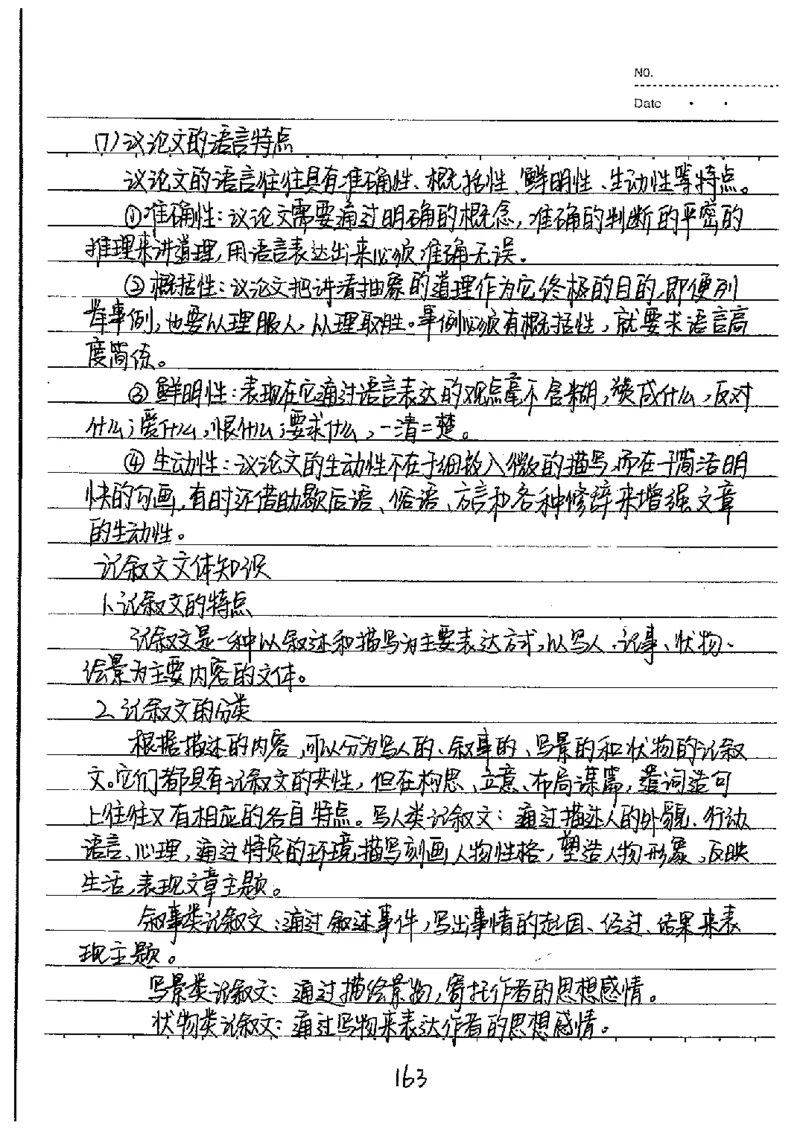 NO.
Date
(7)议论文的语言特点
议论文的语言往往具有准确性、概括性、鲜明性、生动性等特点。
①准确性:议论文需要通过明确的概念,准确的判断的严密的
推理来讲道理,用语言表达出来必须准确无误。
②概括性:议论文把讲清抽象的道理作为它终极的目的,即便列
举事例,也要以理服人,以理取胜。事例必须有概括性,就要求语言高
度简练。
③鲜明性:表现在它通过语言表达的观点毫不含糊,赞成什么,反对
什么;爱什么,恨什么;要求什么,一清二楚。
④生动性:议论文的生动性不在于细致入微的描写,而在于简洁明
快的勾画,有时还借助歇后语、俗语、方言和各种修辞来增强文章
的生动性。
记叙文文体知识
1.记叙文的特点
记叙文是一种以叙述和描写为主要表达方式,以写人、记事、状物、
绘景为主要内容的文体。
2.记叙文的分类
根据描述的内容,可以分为写人的、叙事的、写景的和状物的记叙
文。它们都具有记叙文的共性,但在构思、立意、布局谋篇,遣词造句
上往往又有相应的各自特点。写人类记叙文:通过描述人的外貌、行动
语言、心理,通过特定的环境描写刻画人物性格,塑造人物形象,反映
生活,表现文章主题。
叙事类记叙文:通过叙述事件,写出事情的起因、经过、结果来表
现主题。
写景类记叙文:通过描绘景物,寄托作者的思想感情。
状物类记叙文:通过写物来表达作者的思想感情。
163